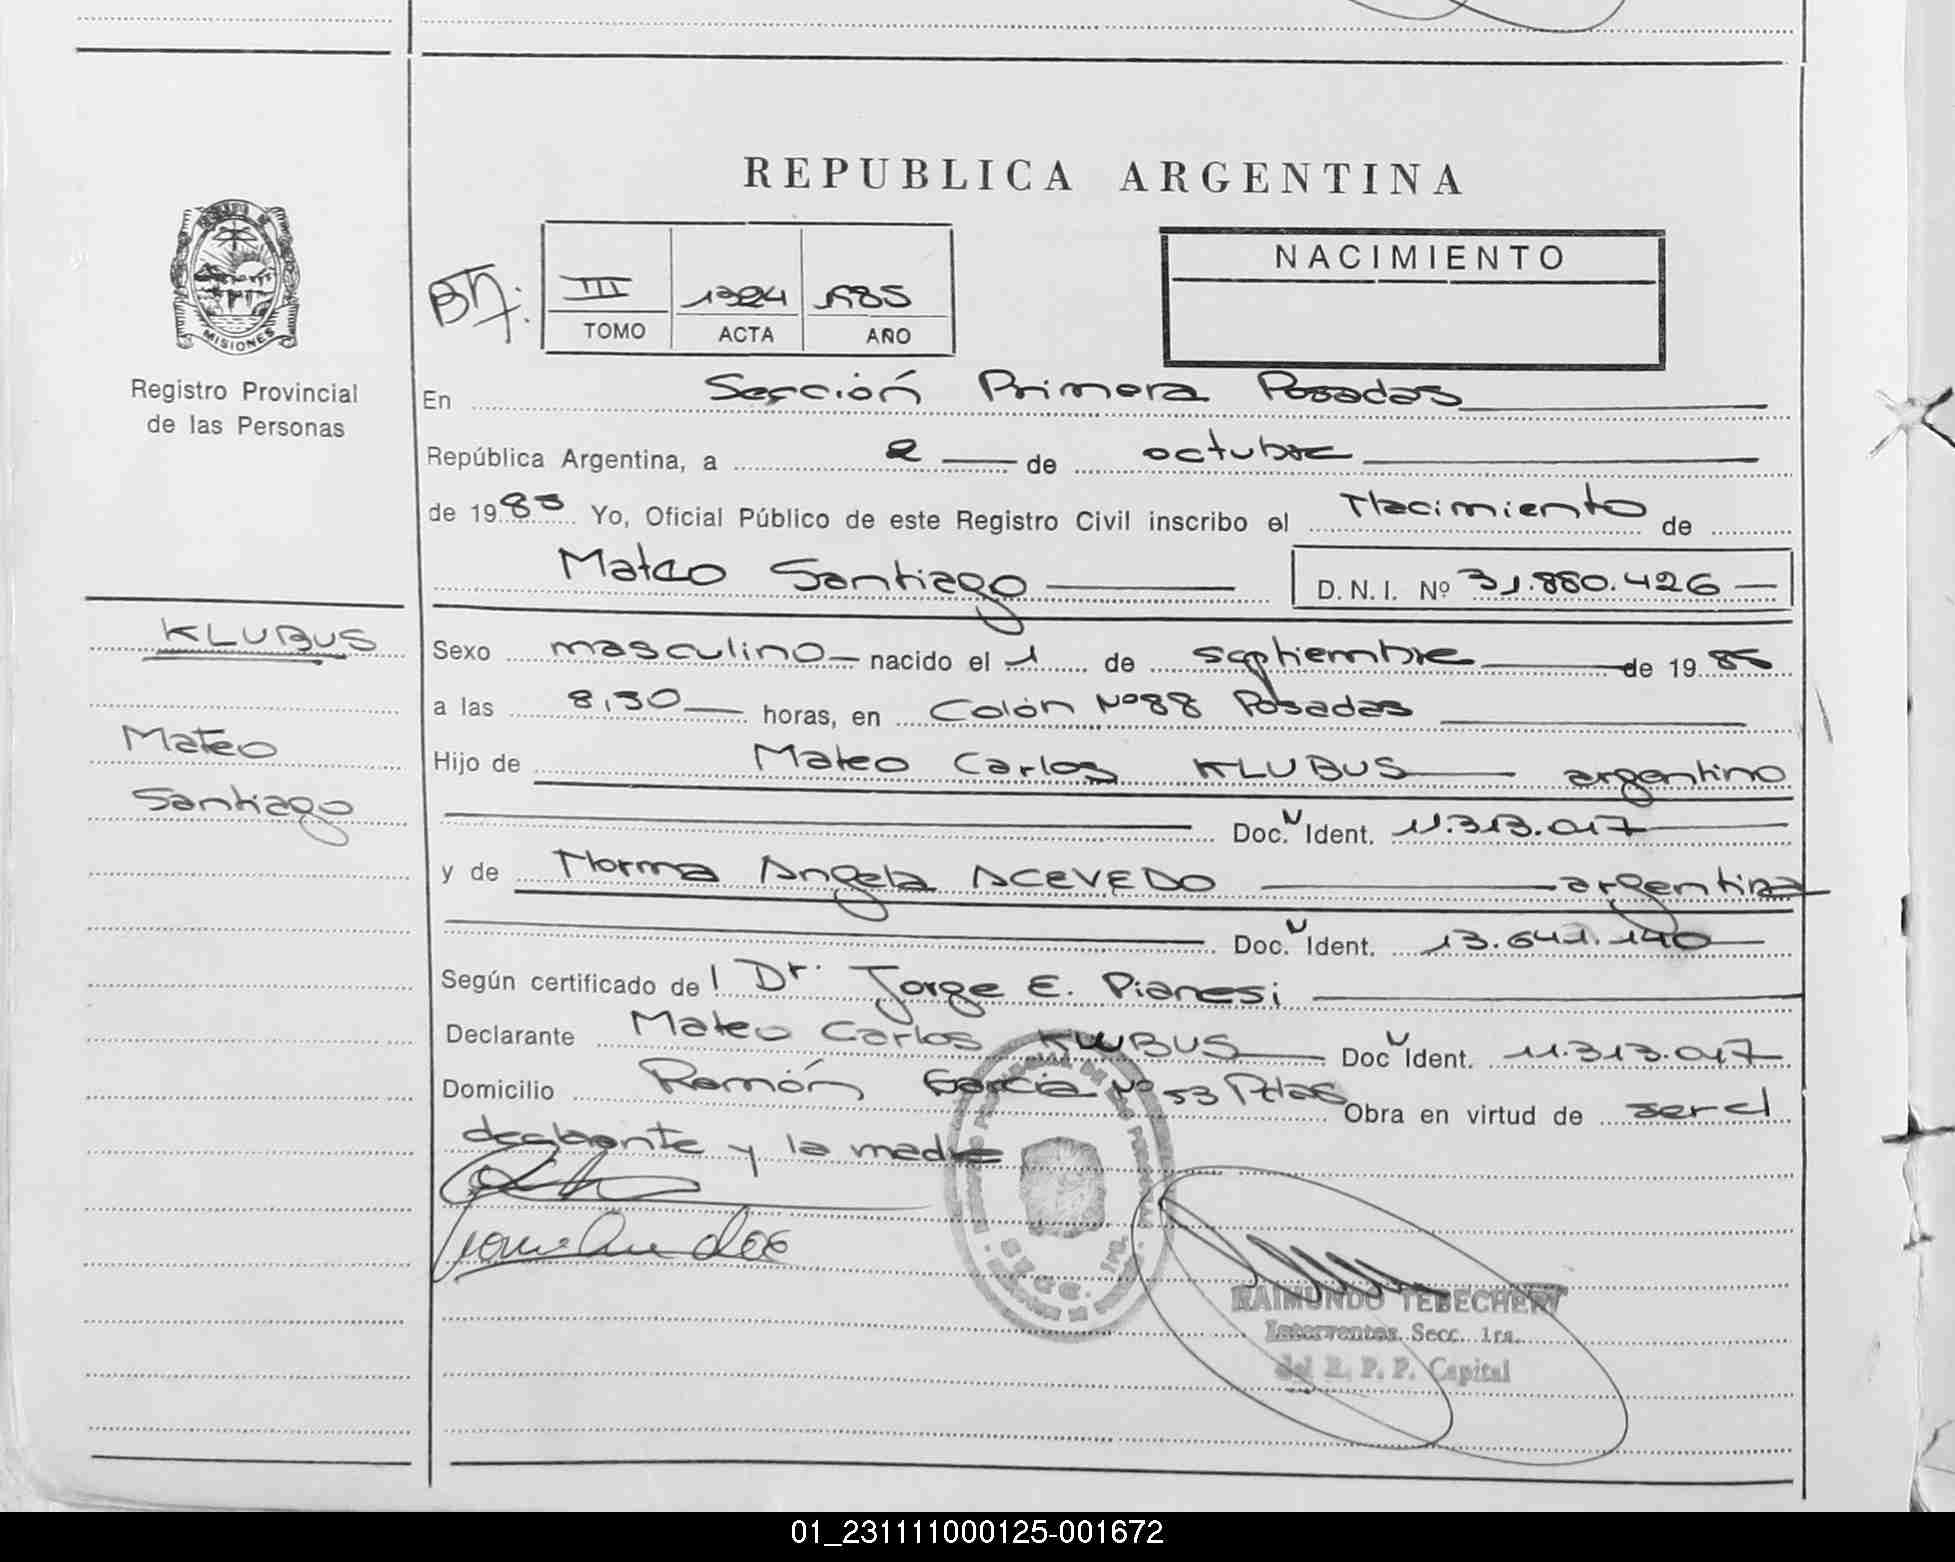 REPUBLICA ARGENTINA
NACIMIENTO
III 1324 1985
TOMO ACTA AÑO
MISIONES
Registro Provincial
de las Personas
En Sección Primera Posadas
República Argentina, a 2 de octubre
de 1985 Yo, Oficial Público de este Registro Civil inscribo el Nacimiento de
Mateo Santiago D.N.I. Nº 31.880.426
KLUBUS
Mateo
Santiago
Sexo masculino nacido el 1 de septiembre de 1985
a las 8,30 horas, en Colón Nº 88 Posadas
Hijo de Mateo Carlos KLUBUS argentino
Doc. Ident. 11.313.017
y de Norma Angela ACEVEDO argentina
Doc. Ident. 13.641.140
Según certificado del Dr. Jorge E. Pianesi
Declarante Mateo Carlos KLUBUS Doc Ident. 11.313.017
Domicilio Ramón García Nº 53 Pdas Obra en virtud de ser el
declarante y la madre
RAIMUNDO TEBECHERY
Interventor Secc. 1ra.
del R. P. P. Capital
01_231111000125-001672